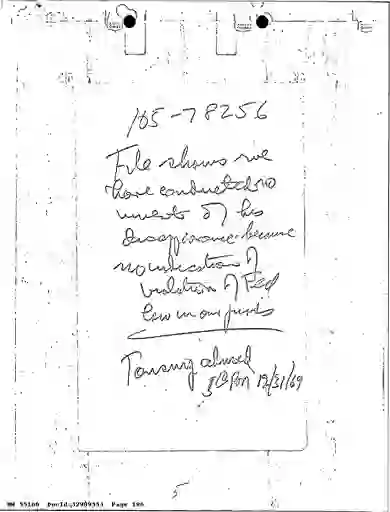 105-78256
File shows we
have conducted no
invest of his
disappearance because
no indication of
violation of Fed
law in our juris
advised
12/31/69
5
NW 55166 DocId:32989551 Page 186